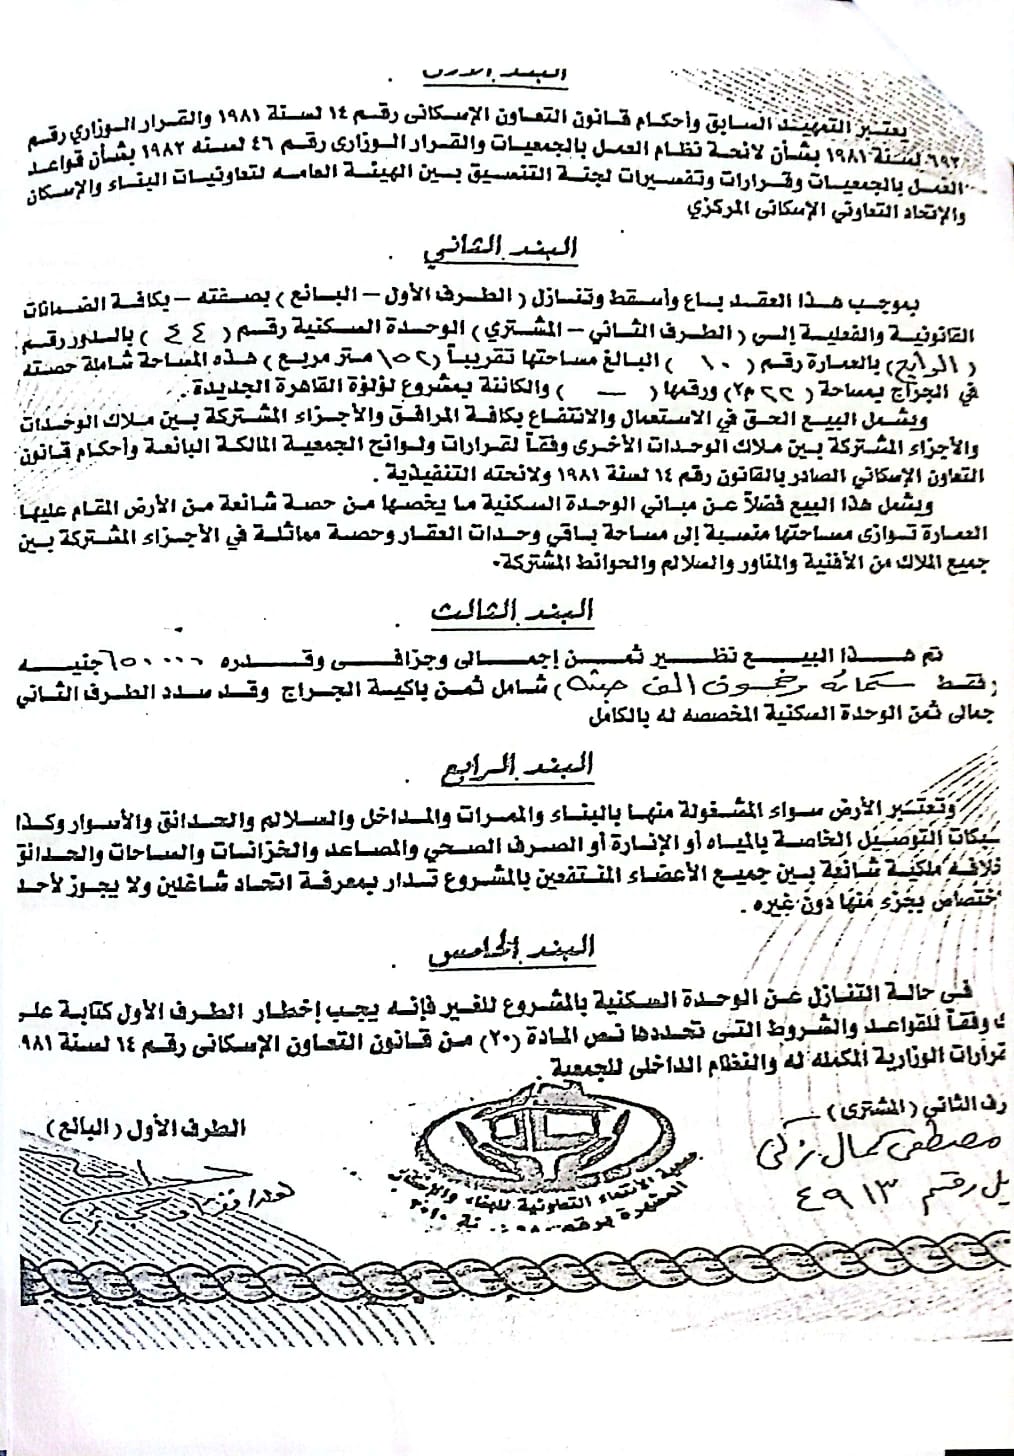 البند الأول
يعتبر التمهيد السابق وأحكام قانون التعاون الإسكانى رقم ١٤ لسنة ١٩٨١ والقرار الوزاري رقم
٦٩٣ لسنة ١٩٨١ بشأن لائحة نظام العمل بالجمعيات والقرار الوزارى رقم ٤٦ لسنه ١٩٨٢ بشأن قواعد
العمل بالجمعيات وقرارات وتفسيرات لجنة التنسيق بين الهيئة العامه لتعاونيات البناء والإسكان
والإتحاد التعاوني الإسكانى المركزي
البند الثاني
بموجب هذا العقد باع وأسقط وتنازل ( الطرف الأول – البائع ) بصفته – بكافة الضمانات
القانونية والفعلية إلى ( الطرف الثاني – المشتري ) الوحدة السكنية رقم ( ٤٤ ) بالدور رقم
( الرابع ) بالعمارة رقم ( ١٠ ) البالغ مساحتها تقريباً ( ١٥٢ متر مربع ) هذه المساحة شاملة حصته
في الجراج بمساحة ( ٢٢ م٢ ) ورقمها ( — ) والكائنة بمشروع لؤلؤة القاهرة الجديدة .
ويشمل البيع الحق في الاستعمال والانتفاع بكافة المرافق والأجزاء المشتركة بين ملاك الوحدات
والأجزاء المشتركة بين ملاك الوحدات الأخرى وفقاً لقرارات ولوائح الجمعية المالكة البائعة وأحكام قانون
التعاون الإسكاني الصادر بالقانون رقم ١٤ لسنة ١٩٨١ ولائحته التنفيذية .
ويشمل هذا البيع فضلاً عن مباني الوحدة السكنية ما يخصها من حصة شائعة من الأرض المقام عليها
العمارة توازى مساحتها منسبة إلى مساحة باقي وحدات العقار وحصة مماثلة في الأجزاء المشتركة بين
جميع الملاك من الأفنية والمناور والسلالم والحوائط المشتركة.
البند الثالث
تم هذا البيع نظير ثمن إجمالى وجزافى وقدره ٦٥٠٠٠٠ جنيه
( فقط ستمائة وخمسون الف جنيه ) شامل ثمن باكية الجراج وقد سدد الطرف الثاني
جمالى ثمن الوحدة السكنية المخصصه له بالكامل
البند الرابع
وتعتبر الأرض سواء المشغولة منها بالبناء والممرات والمداخل والسلالم والحدائق والأسوار وكذا
شبكات التوصيل الخاصة بالمياه أو الإنارة أو الصرف الصحي والمصاعد والخزانات والساحات والحدائق
خلافه ملكية شائعة بين جميع الأعضاء المنتفعين بالمشروع تدار بمعرفة اتحاد شاغلين ولا يجوز لأحد
ختصاص بجزء منها دون غيره .
البند الخامس
فى حالة التنازل عن الوحدة السكنية بالمشروع للغير فإنه يجب إخطار الطرف الأول كتابة على
ك وفقاً للقواعد والشروط التى تحددها نص المادة (٢٠) من قانون التعاون الإسكانى رقم ١٤ لسنة ٩٨١
قرارات الوزارية المكمله له والنظام الداخلى للجمعية .
رف الثاني ( المشترى )
الطرف الأول ( البائع )
مصطفى كمال زكى
يل رقم ٤٩١٣
جمعية الانتماء التعاونية للبناء والإسكان
المشهرة برقم